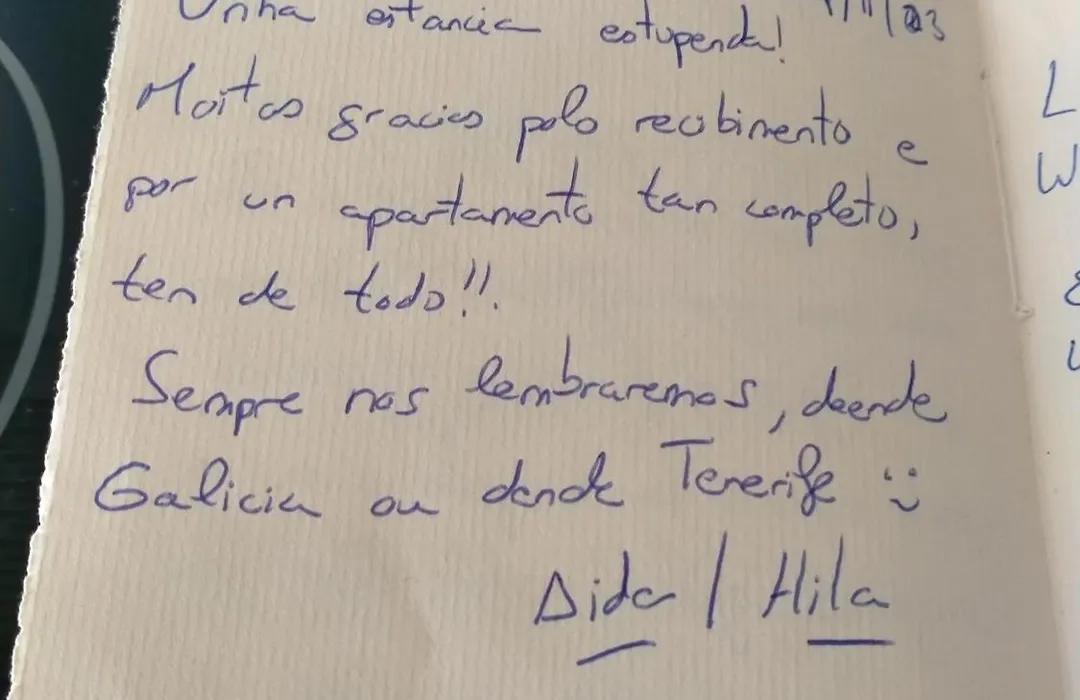 Unha estancia estupenda!
Moitas gracias polo recibimento e
por un apartamento tan completo,
ten de todo!!.
Sempre nos lembraremos, dende
Galicia ou dende Tenerife :)
Aida / Hila
L
W